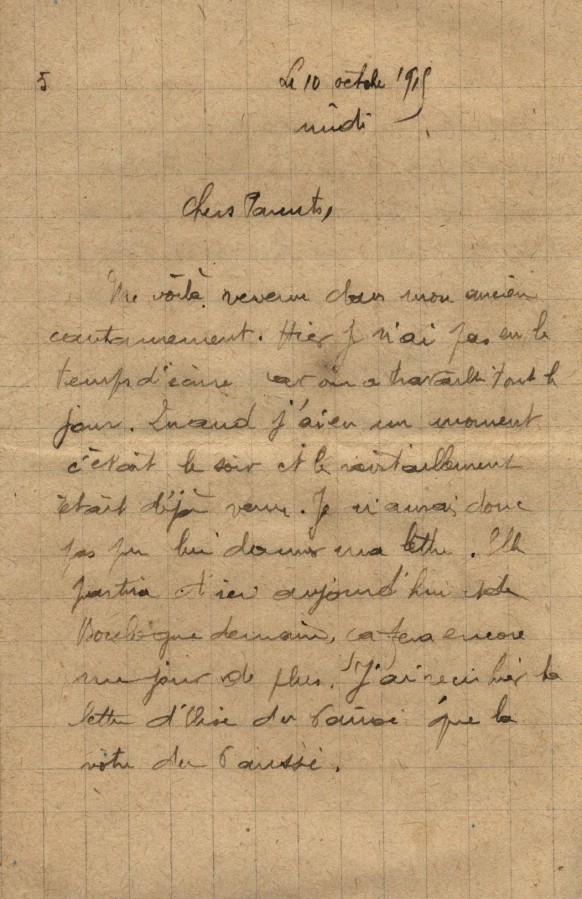 5
Le 10 octobre 1915
midi
Chers Parents,
Me voilà revenu dans mon ancien
cantonnement. Hier je n'ai pas eu le
temps d'écrire car on a travaillé tout le
jour. Quand j'ai eu un moment
c'était le soir et le ravitaillement
était déjà venu. Je n'aurai donc
pas pu lui donner ma lettre. Elle
partira d'ici aujourd'hui et de
demain, ça fera encore
un jour de plus. J'ai reçu hier la
lettre d'Elise du 6 ainsi que la
vôtre du 6 aussi.